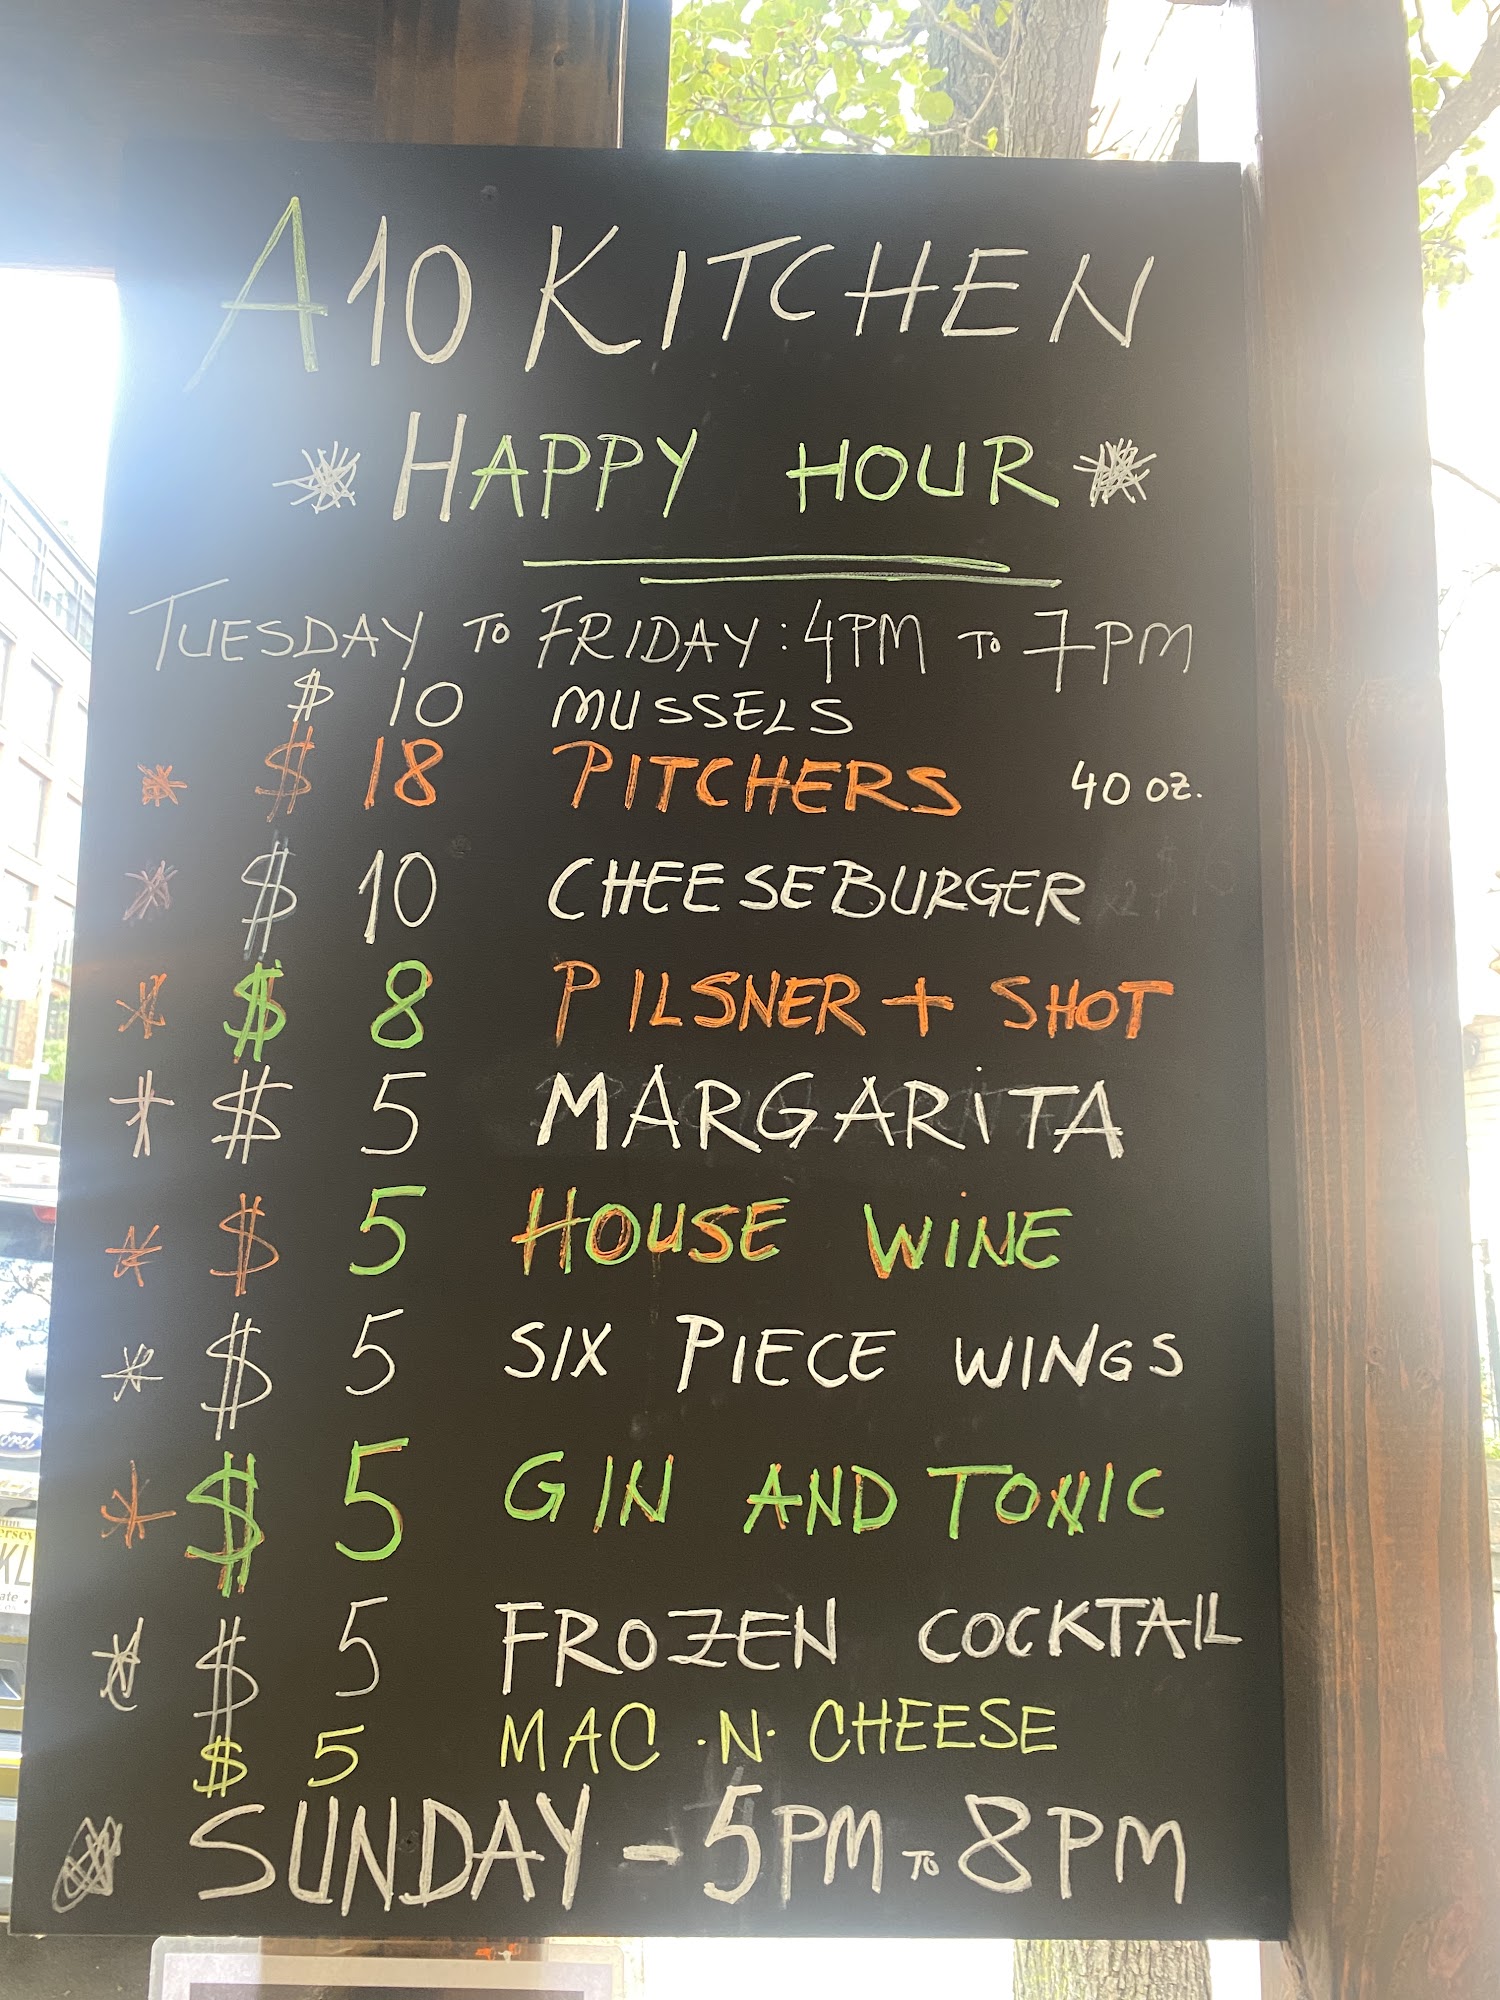 A10 KITCHEN
HAPPY HOUR
TUESDAY TO FRIDAY: 4PM TO 7PM
$ 10 MUSSELS
* $ 18 PITCHERS 40 OZ.
* $ 10 CHEESEBURGER
* $ 8 PILSNER + SHOT
* $ 5 MARGARITA
* $ 5 HOUSE WINE
* $ 5 SIX PIECE WINGS
* $ 5 GIN AND TONIC
* $ 5 FROZEN COCKTAIL
$ 5 MAC ·N· CHEESE
SUNDAY - 5PM TO 8PM